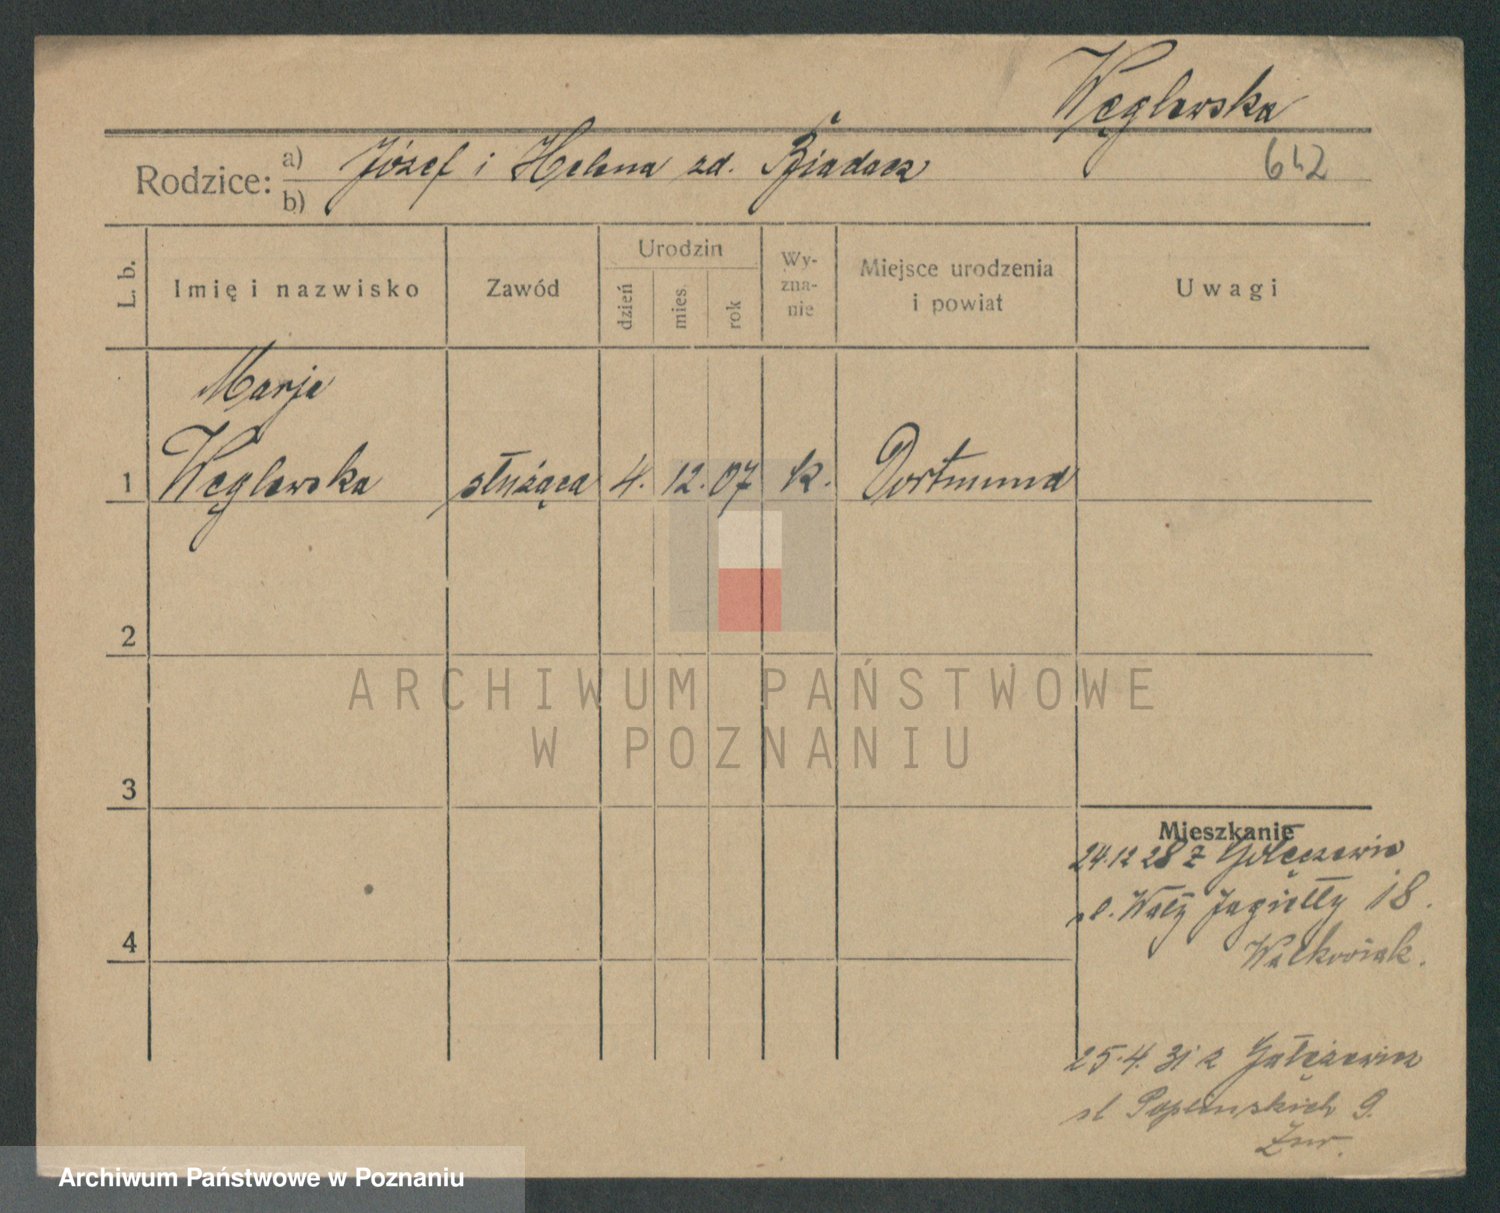 Węglewska
642
Rodzice: a) Józef i Helena zd. Biadacz
b)
L. b.
Imię i nazwisko
Zawód
Urodzin
dzień
mies.
rok
Wy-
zna-
nie
Miejsce urodzenia
i powiat
Uwagi
Marja
1 Węglewska służąca 4. 12. 07 k. Dortmund
2
3
4
Mieszkanie
24.12 28 z
Wały Jagiełły 18.
Walkowiak.
25.4. 31 z
9.
ARCHIWUM PAŃSTWOWE
W POZNANIU
Archiwum Państwowe w Poznaniu